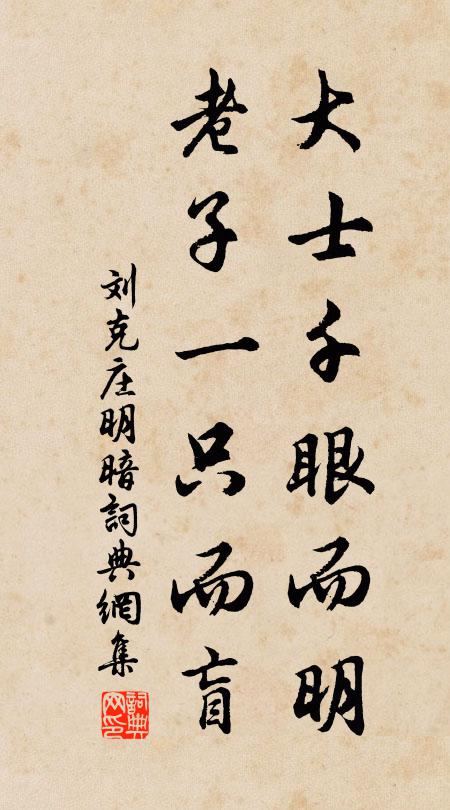 大士千眼而明
老子一只而盲
刘克庄明暗詞典網集
詞典网印